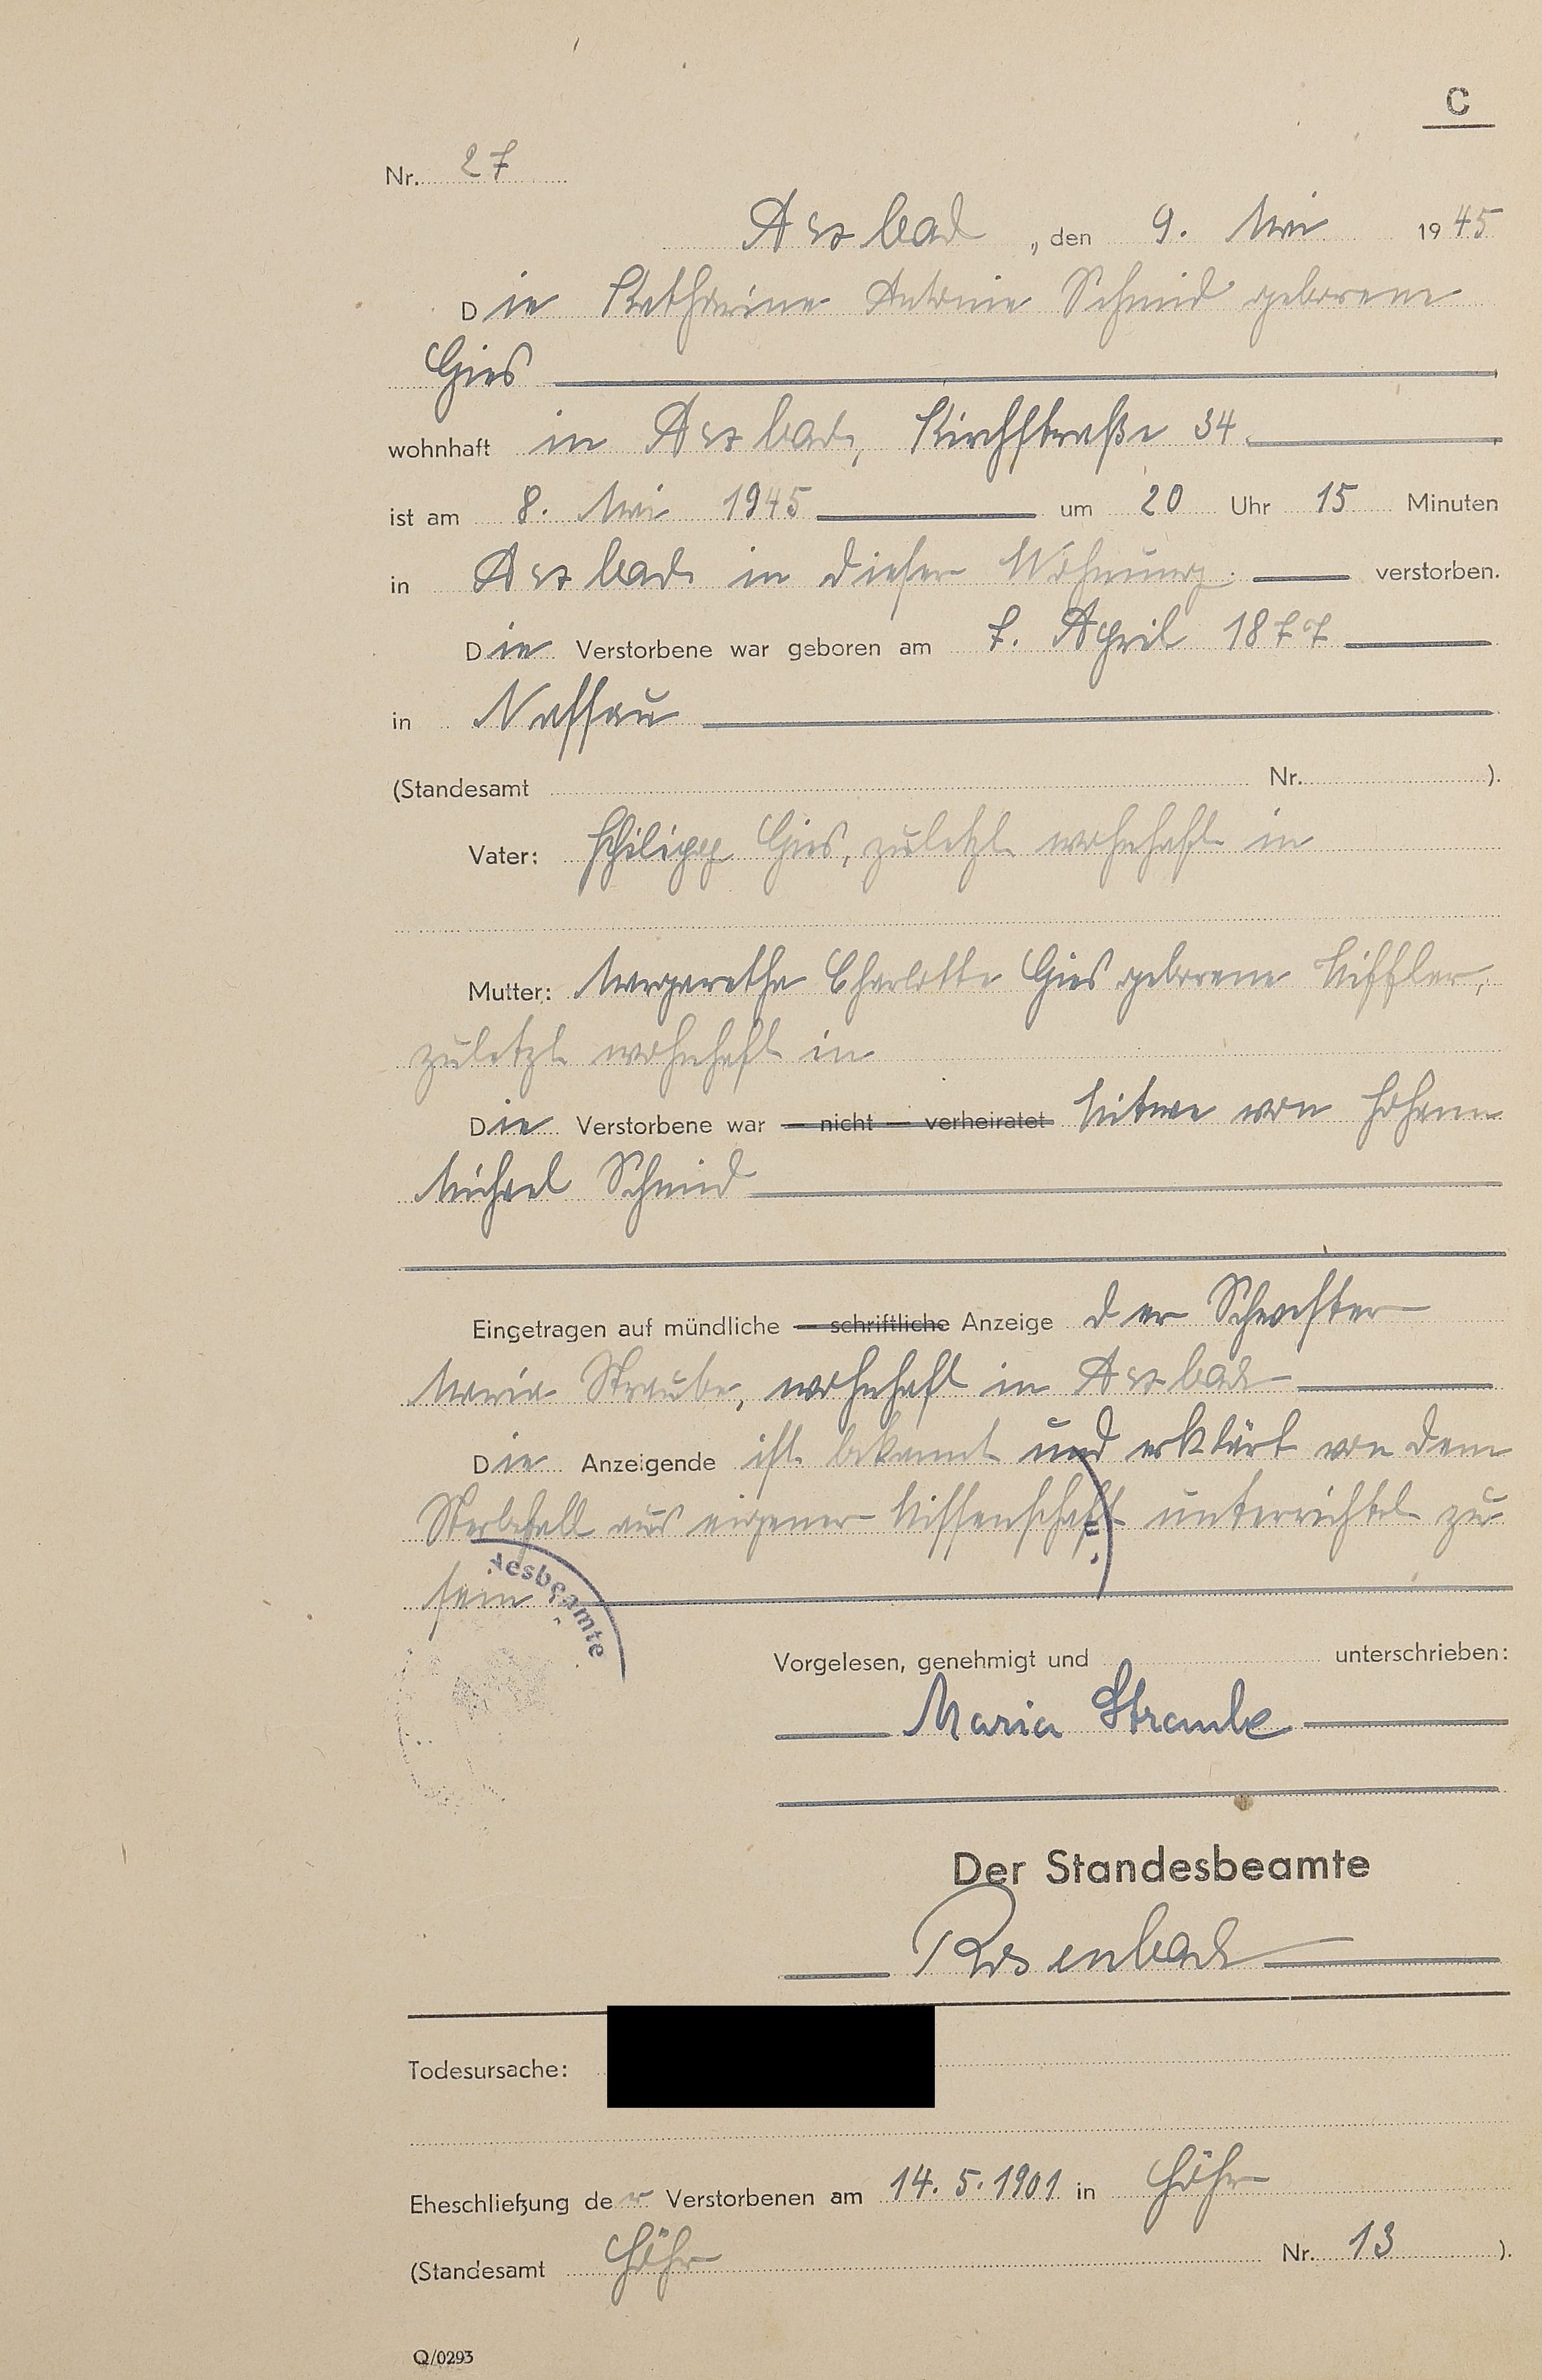 C
Nr. 27
Arzbach, den 9. Mai 1945
Die Katharina Antonie Schmid geborene
Gies
wohnhaft in Arzbach, Kirchstraße 34
ist am 8. Mai 1945 um 20 Uhr 15 Minuten
in Arzbach in dieser Wohnung verstorben.
Die Verstorbene war geboren am 7. April 1877
in Nassau
(Standesamt Nr. ).
Vater: Philipp Gies, zuletzt wohnhaft in
Mutter: Margaretha Charlotte Gies geborene
zuletzt wohnhaft in
Die Verstorbene war — nicht — verheiratet Witwe von Johann
Michael Schmid
Eingetragen auf mündliche — schriftliche Anzeige der Schwester
Maria Straube, wohnhaft in Arzbach
Die Anzeigende ist bekannt und erklärt von dem
Sterbefall aus eigener Wissenschaft unterrichtet zu
sein
desbeamte
Vorgelesen, genehmigt und unterschrieben:
Maria Straube
Der Standesbeamte
Rosenbach
Todesursache:
Eheschließung der Verstorbenen am 14.5.1901 in Höhr
(Standesamt Höhr Nr. 13 ).
Q/0293